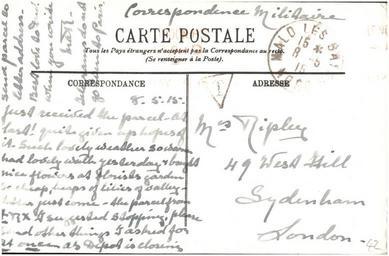 Correspondence Militaire
CARTE POSTALE
Tous les Pays étrangers n'acceptent pas la Correspondance au recto.
(Se renseigner à la Poste.)
CORRESPONDANCE
ADRESSE
8.5.15.
Just received the parcel at
last! quite given up hopes of
it. Such lovely weather so warm
had lovely walk yesterday & bought
nice flowers at florists garden
so cheap, heaps of lilies of valley
letter just come - the parcel from
I suggested stopping, please
send other things I asked for
at once as Depot is closing
send parcel to
letter address.
Best love to
when you write
Mrs Ripley
49 West Hill
Sydenham
London -
MALO LES
15
42